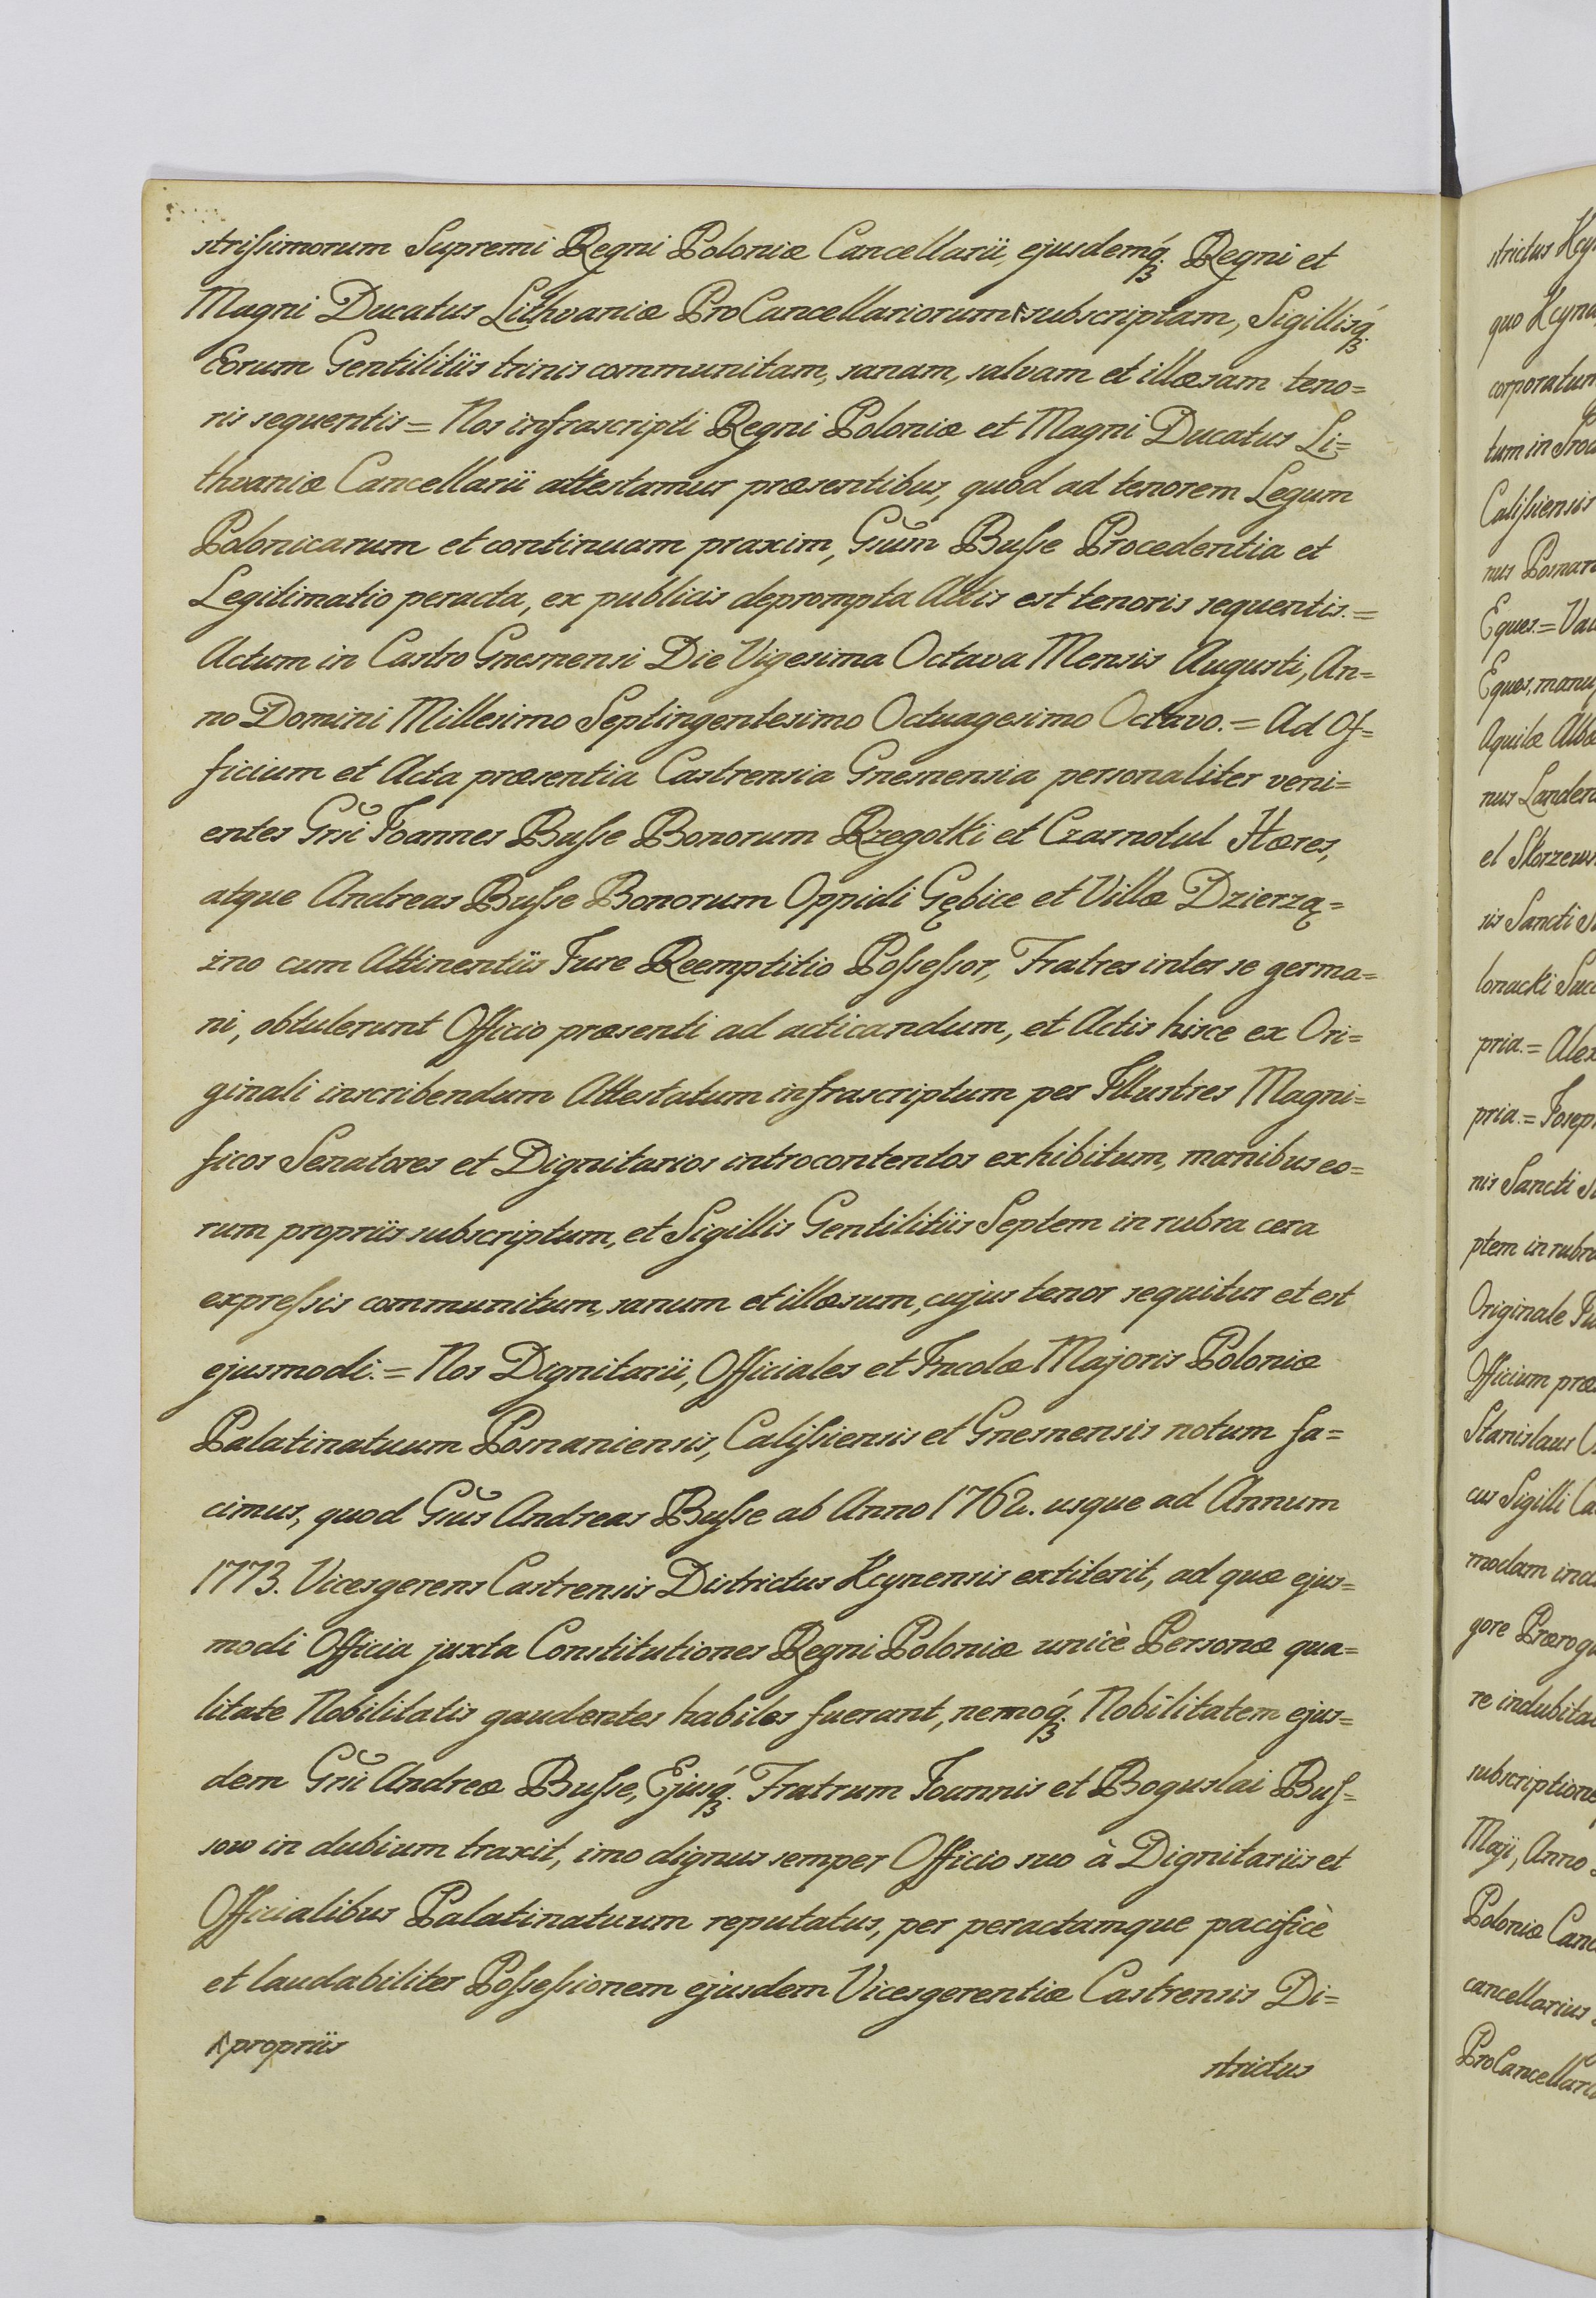 striſsimorum Supremi Regni Poloniæ Cancellarii, ejusdemq́ꝫ Regni et
Magni Ducatus Lithvaniæ ProCancellariorum subscriptam, Sigillisq́ꝫ
Eorum Gentilitiis trinis communitam, sanam, salvam et illæsam teno=
ris sequentis = Nos infrascripti Regni Poloniæ et Magni Ducatus Li=
thvaniæ Cancellarii attestamur præsentibus, quòd ad tenorem Legum
Polonicarum et continuam praxim, Gnũm Buſse Procedentia et
Legitimatio peracta, ex publicis deprompta Actis est tenoris sequentis. =
Actum in Castro Gnesnensi Die Vigesima Octava Mensis Augusti, An=
no Domini Millesimo Septingentesimo Octuagesimo Octavo. = Ad Of=
ficium et Acta præsentia Castrensia Gnesnensia personaliter veni=
entes Gnsĩ Joannes Buſse Bonorum Rzegotki et Czarnotul Hæres,
atque Andreas Buſse Bonorum Oppidi Gębice et Villæ Dzierzą=
zno cum Attinentiis Jure Reemptitio Poſseſsor, Fratres inter se germa=
ni, obtulerunt Officio præsenti ad acticandum, et Actis hisce ex Ori=
ginali inscribendum Attestatum infrascriptum per Illustres Magni=
ficos Senatores et Dignitarios introcontentos exhibitum, manibus eo=
rum propriis subscriptum, et Sigillis Gentilitiis Septem in rubra cera
expreſsis communitum, sanum et illæsum, cujus tenor sequitur et est
ejusmodi. = Nos Dignitarii, Officiales et Incolæ Majoris Poloniæ
Palatinatuum Posnaniensis, Caliſsiensis et Gnesnensis notum fa=
cimus, quod Gnũs Andreas Buſse ab Anno 1762. usque ad Annum
1773. Vicesgerens Castrensis Districtus Kcynensis extiterit, ad quæ ejus=
modi Officia juxta Constitutiones Regni Poloniæ unicè Personæ qua=
litate Nobilitatis gaudentes habiles fuerant, nemoq́ꝫ Nobilitatem ejus=
dem Gnĩi Andreæ Buſse, Ejusq́ꝫ Fratrum Joannis et Boguslai Buſ=
sow in dubium traxit, imo dignus semper Officio suo à Dignitariis et
Officialibus Palatinatuum reputatus, per peractamque pacificè
et laudabiliter Poſseſsionem ejusdem Vicesgerentiæ Castrensis Di=
propriis
strictus
strictus
quo
corporatum
tum in
Caliſsiensis
nus
Eques. =
Eques, manu
Aquilæ Albæ
nus
el
ris Sancti
lonacki
pria. =
pria. =
nis Sancti
ptem in rubra
Originale
Officium
Stanislaus
cus Sigilli
modam
gore
re
subscriptione
Maji, Anno
Poloniæ
cancellarius